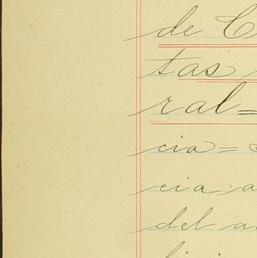 de C
tas
ral=
cia=
cia a
del a